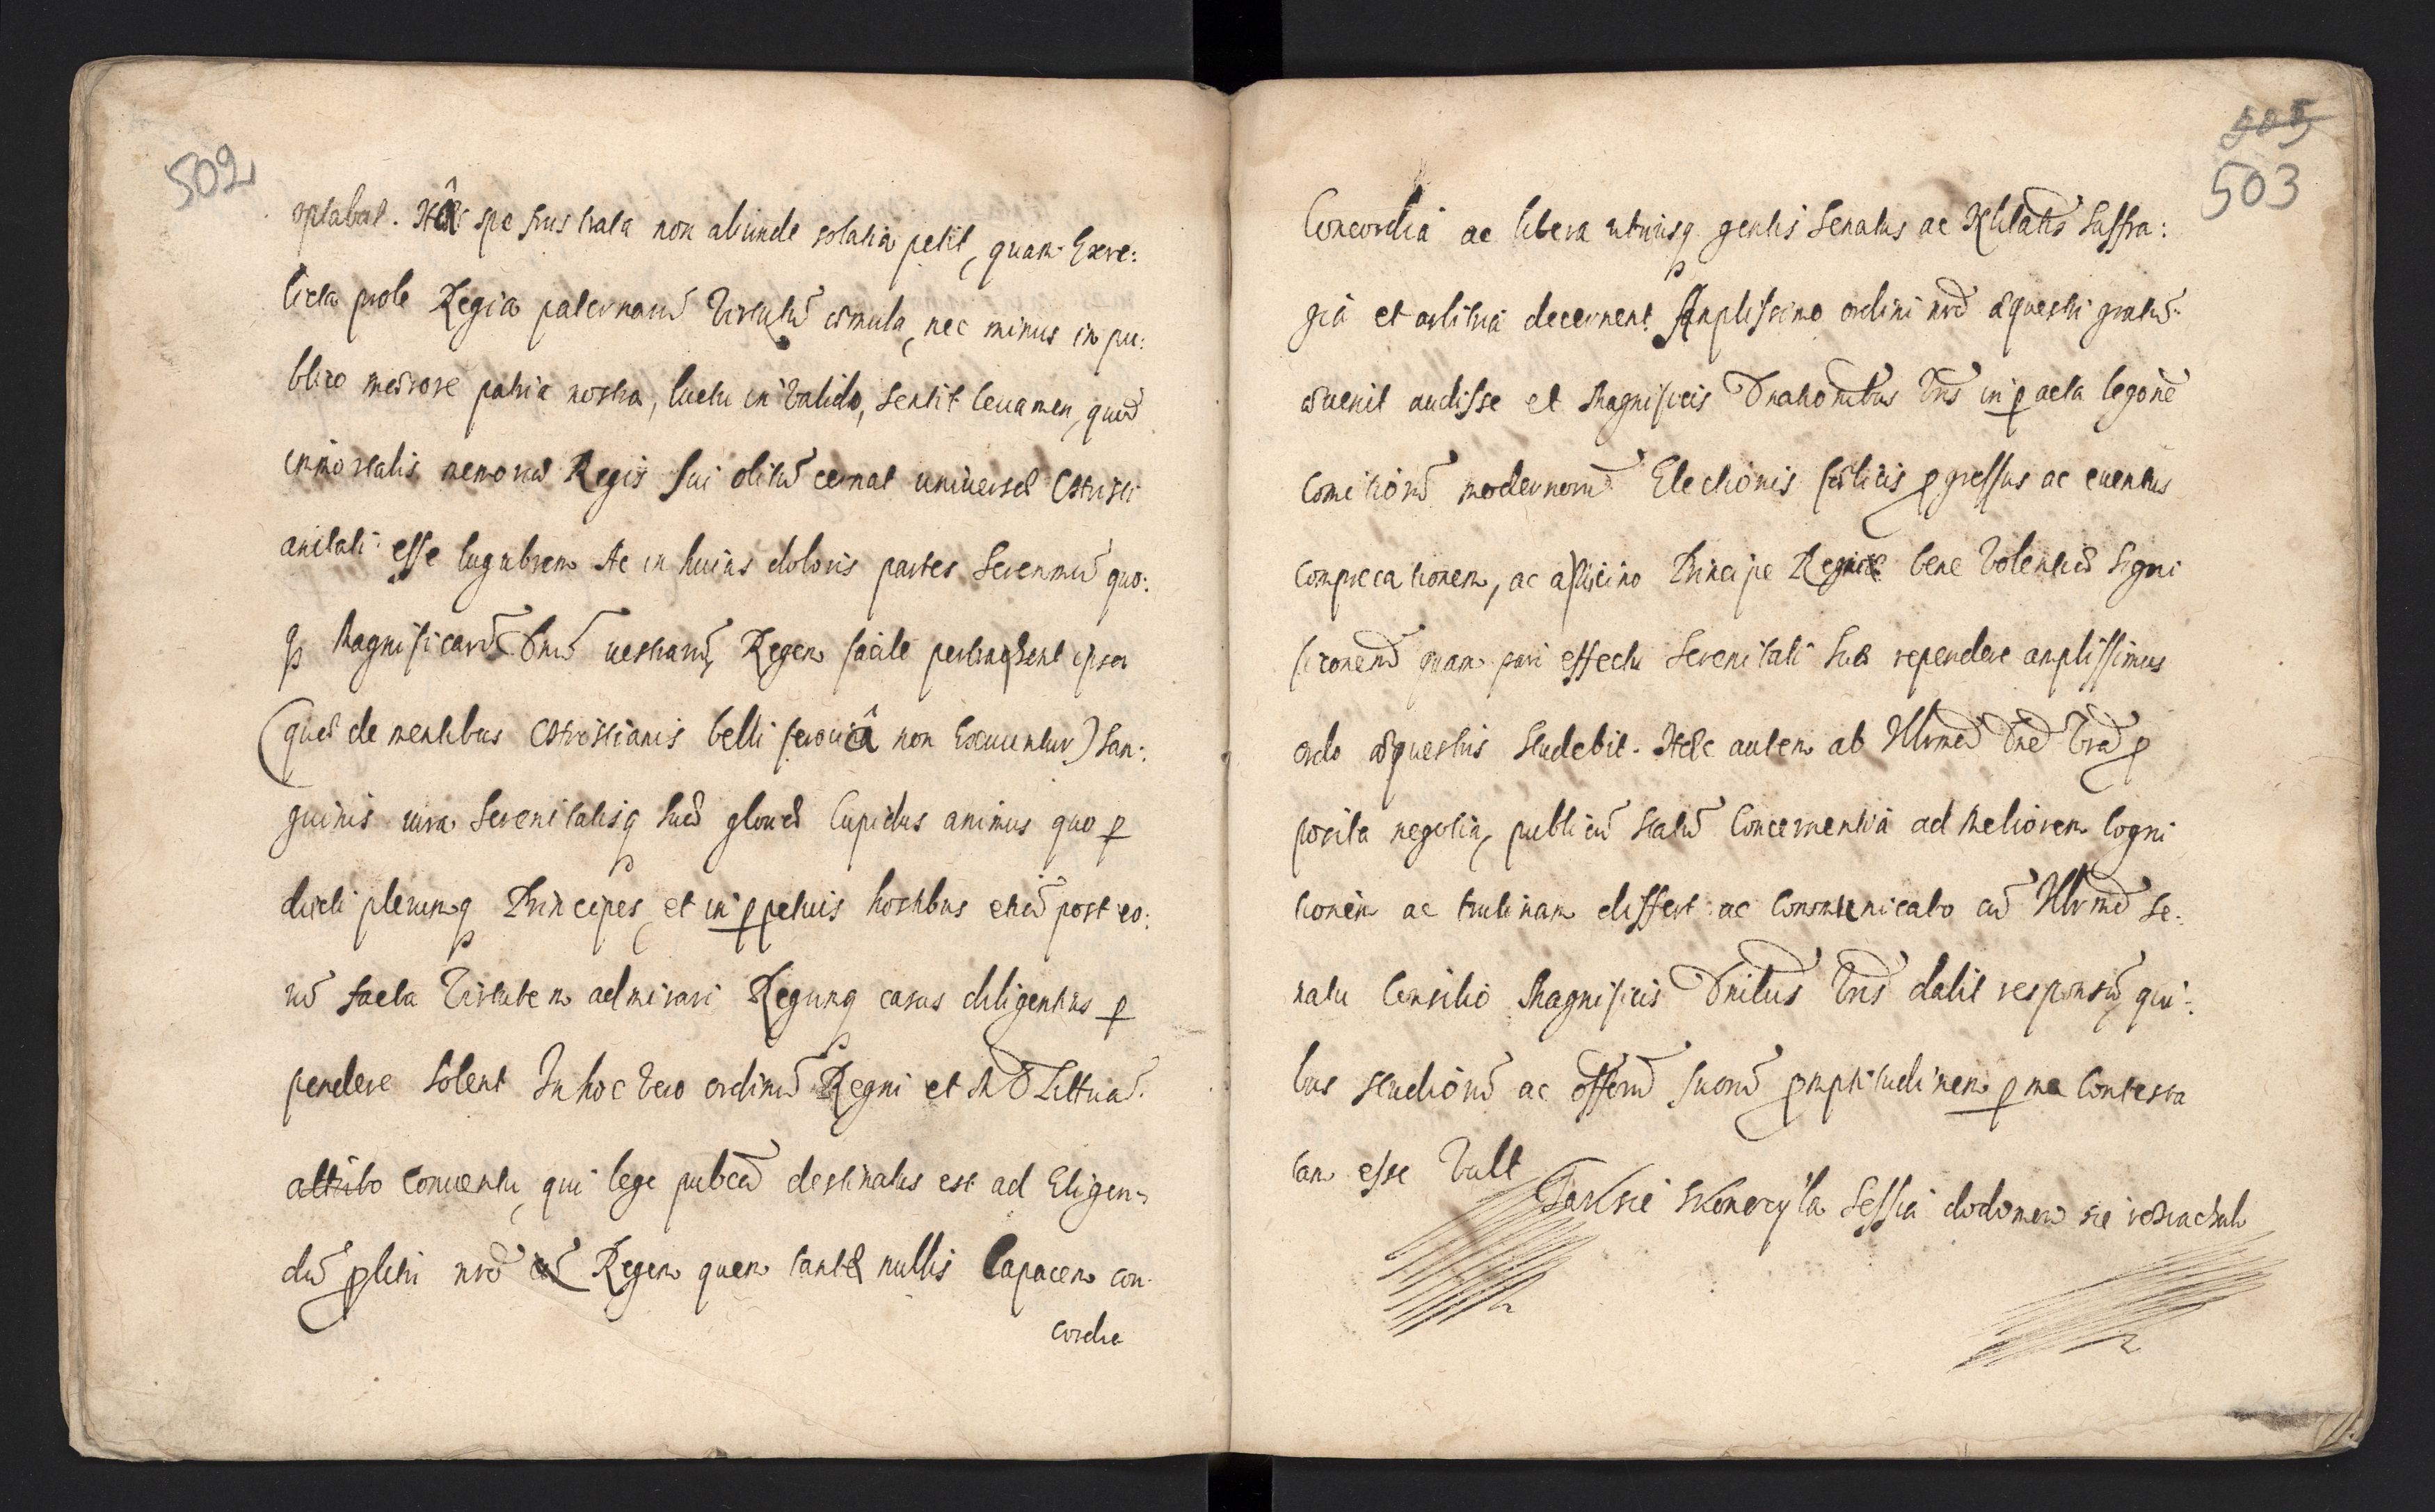 502
optabat. Hâc spe frustrata non aliunde solatia petit, quam Exre:
licta prole Regia paternarũ Virtutũ æmula, nec minus in pu:
blico mærore patria nostra, luctu in valido, sentit levamen, quod
immortalis memoriæ Regis sui obitũ cernat universæ Christi
anitati esse lugubrem Ac in huius doloris partes Serenmũ quo:
q Magnificarũ Dnũ vestrarũ Regem facile pertrahent ipsa
(quæ de mentibus Christianis belli ferociâ non Excuntur) San:
guinis iura Serenitatisq suæ gloriæ Cupidus animus quo p
ducti plerumq Principes, et in ppetuis hostibus etiã post eo:
rũ facta Virtutem admirari Regumq casus diligentius p
pendere solent In hoc vero ordinũ Regni et M D Littuã.
Conventu, qui lege publcâ destinatus est ad Eligen=
dũ pliti nrõ Regem quem tantæ nullis Capacem con-
cordia
505
503
Concordia ac libera utriusq gentis Senatus ac Nblitatis Suffra:
gia et arbitria decernent Amplissimo ordini nrõ æquestri gratũ
advenit audisse et Magnificis Dnationibus Vris in pacta legõne
Comitiorũ modernorũ Electionis fælicis pgressus ac eventus
Comprecationem, ac a Principe Regniæ benevolentiæ Signi
ficonem quam pari effectu Serenitati suæ rependere amplissimus
ordo æquestris studebit. Hæc autem ab Illrmis Dnõ Vrã p
posita negotia, publicũ statũ Concernentia ad meliorem Cogni
tionem ac trutinam differt ac Communicato cũ Illrmõ Se:
natu Consilio Magnificis Dnibus Vris dabit responsũ, qui:
bus studiorũ ac offorũ suorũ pmptitudinem p me Contesta
tam esse Vult
Tak sie skonczyła Sessia dodomow sie rosiachali